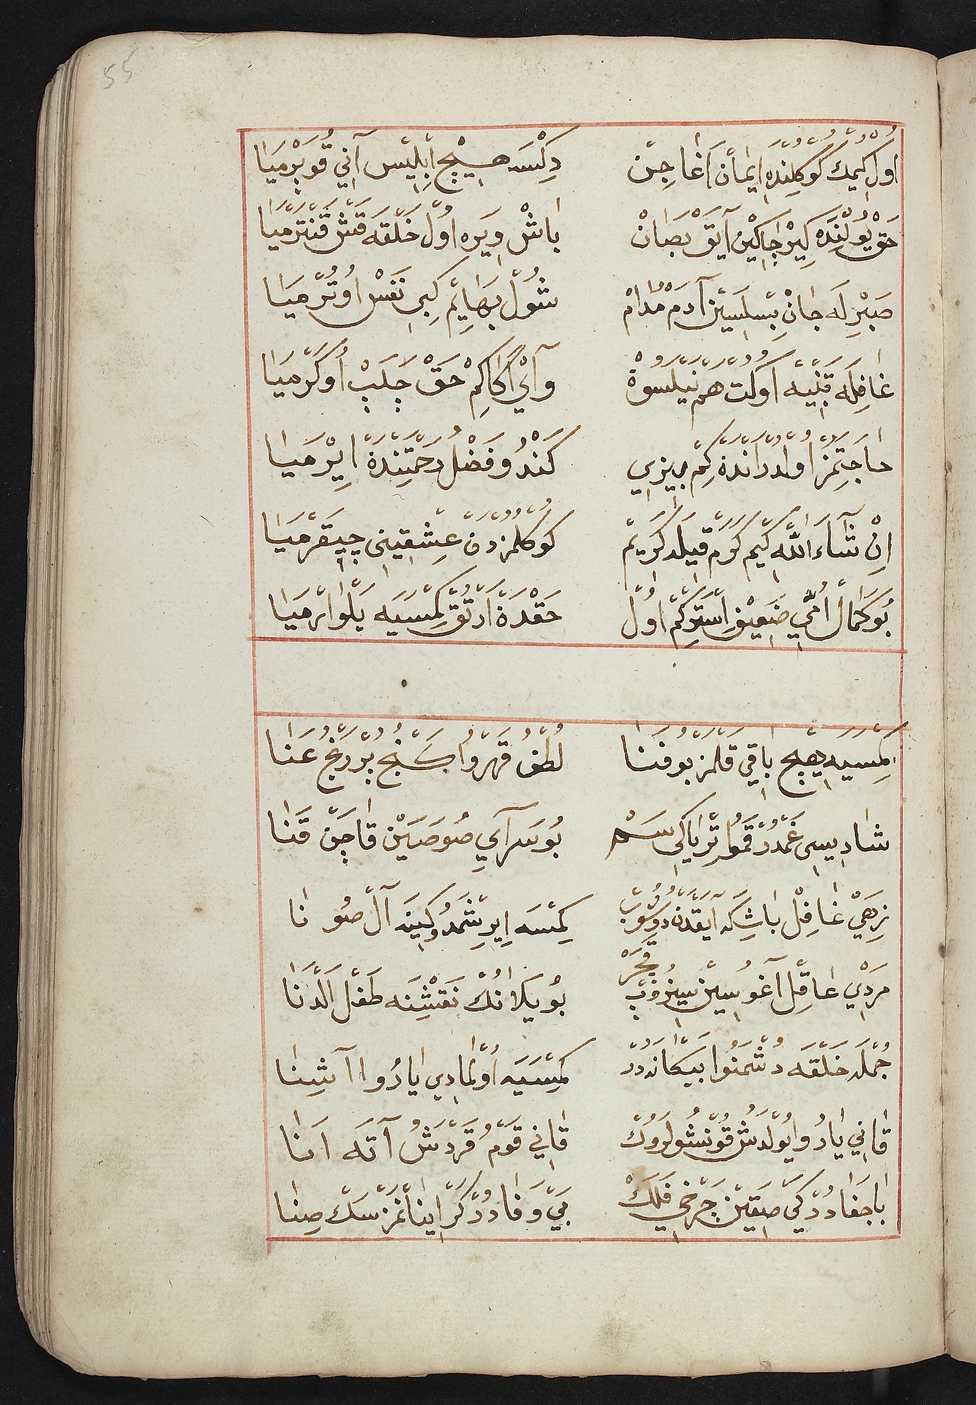 55
اول كیمك كوكلنده ایمان اغاجن دكسه هیچ ابلیس آنی قوپرمیا
حق یولنده كیرجاكین آیق بصان باش ویره اول خلقه قش قنترمیا
صبریله جان بسلسین آدم مدام شول بهایم كبی نفس اوترمیا
غافله قنیه اوكت هم نیلسون وآی اكاكم حق چلب اوكرمیا
حاجتمز اولدر انده كم بیزی كندو فضل رحمتنده ایرمیا
ان شاء الله كیم كرم قیله كریم كوكلمزدن عشقینی چیقرمیا
بو كمال امی ضعیف استركم اول حقدرة ارتق كمسیه یلوارمیا
كمسیه هیچ باقی قلمز بو فنا لطف قهرو كنج بردرنج عنا
شادیسی غمدر قمو تریاكی سم بو سرآی صوصین قاچن قنا
زهی غافل باشكه آیقدن دوكوب كمسه ایرشمدوكینه آل صونا
مردی عاقل آغوسین سیزوب قجر بو یلانك نقشنه طفل الدانا
جمله خلقه دشمنوا بیكانه در كمسیه اولمادی ایادوا آشنا
قانی یادوا یولدش قونشولروك قانی قوم قردش آته انا
باجفادر كی صقین چرخی فلك بی وفادر كر اینانمزسك صنا